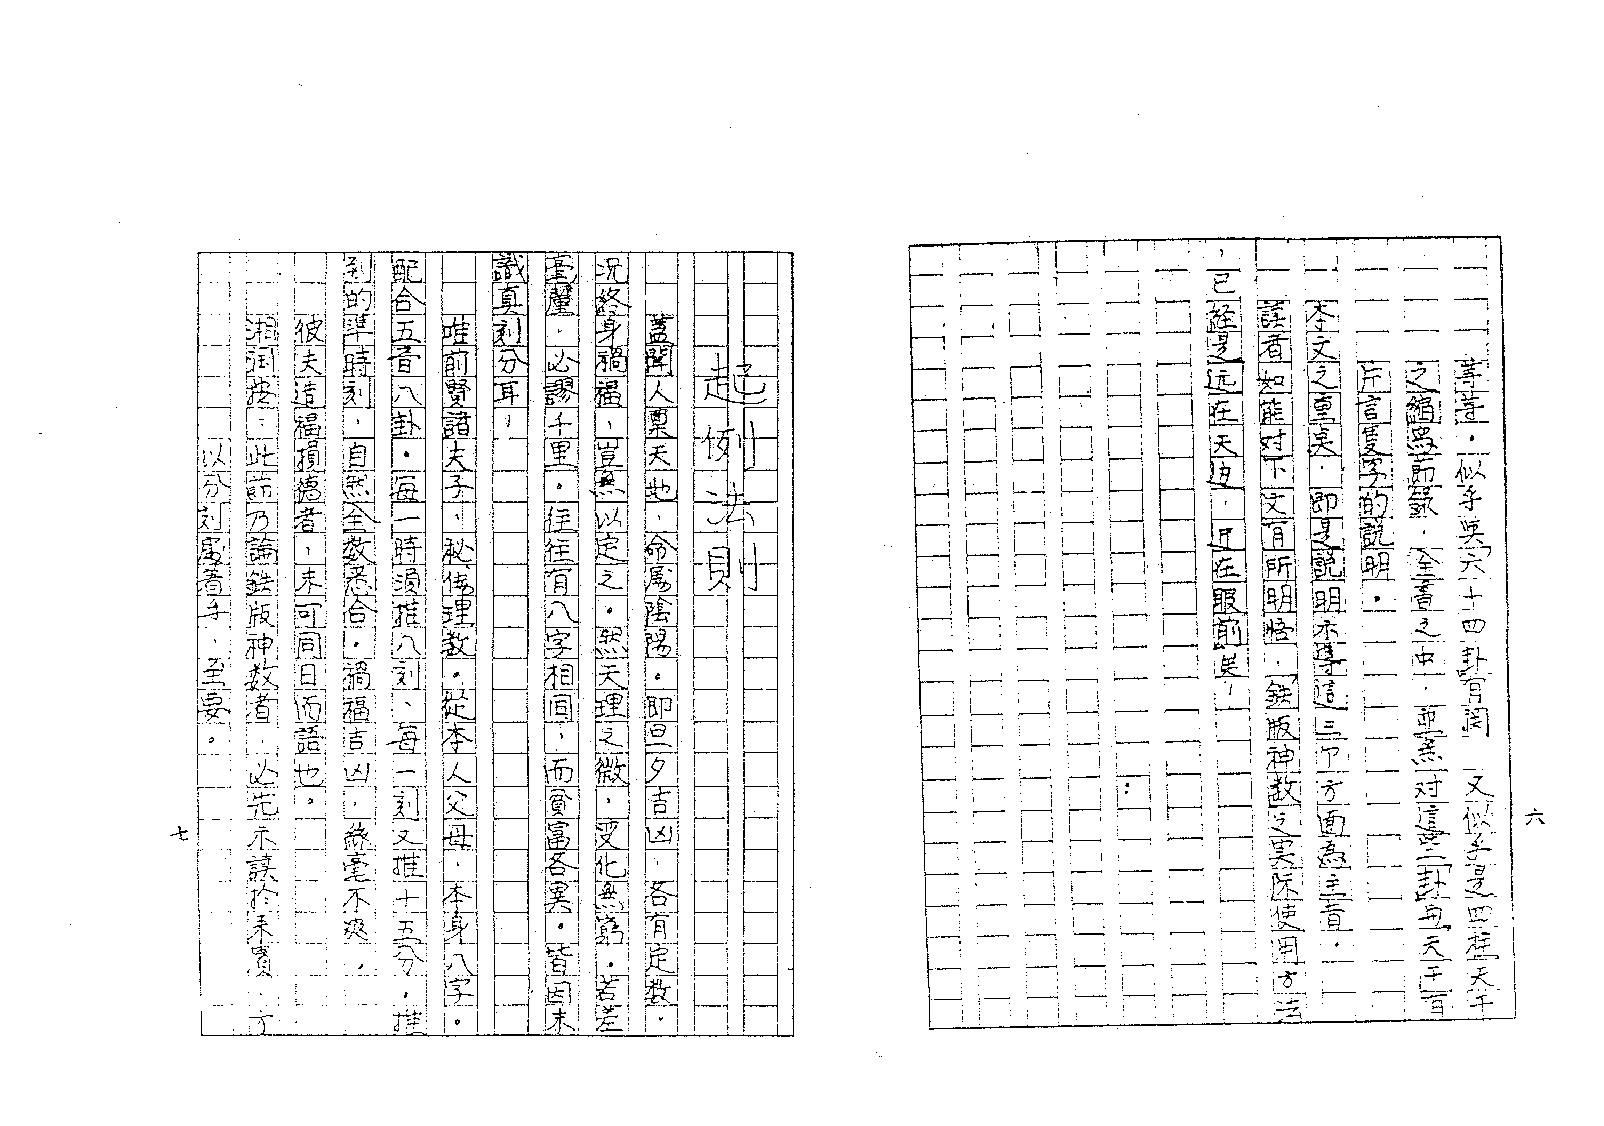 六
等等。似乎與六十四卦有関 又似乎是四柱天干
之縮寫節錄。全書之中，並無对這些卦與天干有
片言隻字的説明。
本文之重桌，即是説明示導這三个方面為主旨。
讀者如能对下文有所明悟，鉄版神数之実际使用方法
，已經是远在天边，近在眼前矣，
起例法則
蓋聞人稟天地，命属陰陽。即旦夕吉凶，各有定数。
況終身禍福，豈無以定之。然天理之微，变化無窮。若差
毫釐，必謬千里。往往有八字相同，而貧富各異。皆因未
識真刻分耳，
唯前賢諸夫子，秘傳理数。從本人父母，本身八字。
配合五音八卦。每一時須推八刻，每一刻又推十五分，推
到的準時刻，自然全数悉合。禍福吉凶，絲毫不爽，
彼夫造福損德者，未可同日而語也。
湘润按，此節乃論鉄版神数者，必先求諸於來賓，方
以分刻為着手，至要。
七